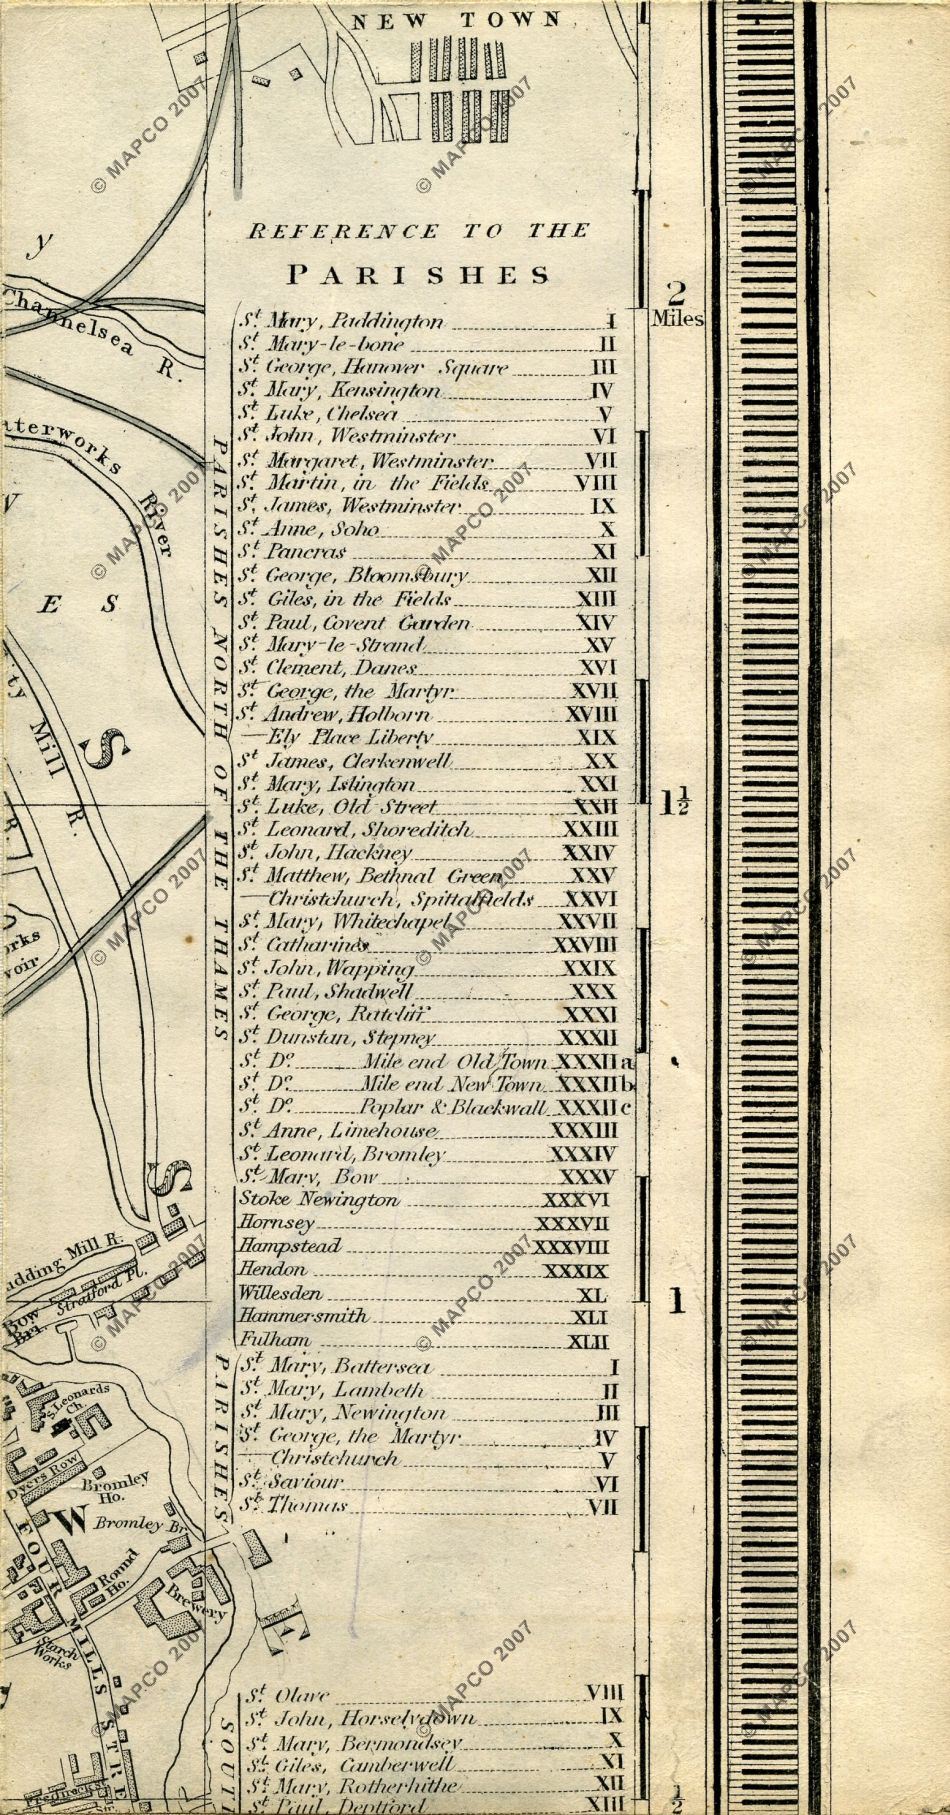 NEW TOWN
REFERENCE TO THE
PARISHES
PARISHES NORTH OF THE THAMES
St. Mary, Paddington I
St. Mary-le-bone II
St. George, Hanover Square III
St. Mary, Kensington IV
St. Luke, Chelsea V
St. John, Westminster VI
St. Margaret, Westminster VII
St. Martin, in the Fields VIII
St. James, Westminster IX
St. Anne, Soho X
St. Pancras XI
St. George, Bloomsbury XII
St. Giles, in the Fields XIII
St. Paul, Covent Garden XIV
St. Mary-le-Strand XV
St. Clement, Danes XVI
St. George, the Martyr XVII
St. Andrew, Holborn XVIII
— Ely Place Liberty XIX
St. James, Clerkenwell XX
St. Mary, Islington XXI
St. Luke, Old Street XXII
St. Leonard, Shoreditch XXIII
St. John, Hackney XXIV
St. Matthew, Bethnal Green XXV
— Christchurch, Spittalfields XXVI
St. Mary, Whitechapel XXVII
St. Catharines XXVIII
St. John, Wapping XXIX
St. Paul, Shadwell XXX
St. George, Ratcliff XXXI
St. Dunstan, Stepney XXXII
St. Do. Mile end Old Town XXXII a
St. Do. Mile end New Town XXXII b
St. Do. Poplar & Blackwall XXXII c
St. Anne, Limehouse XXXIII
St. Leonard, Bromley XXXIV
St. Mary, Bow XXXV
Stoke Newington XXXVI
Hornsey XXXVII
Hampstead XXXVIII
Hendon XXXIX
Willesden XL
Hammersmith XLI
Fulham XLII
PARISHES
St. Mary, Battersea I
St. Mary, Lambeth II
St. Mary, Newington III
St. George, the Martyr IV
— Christchurch V
St. Saviour VI
St. Thomas VII
SOUT
St. Olave VIII
St. John, Horselydown IX
St. Mary, Bermondsey X
St. Giles, Camberwell XI
St. Mary, Rotherhithe XII
St. Paul, Deptford XIII
2
Miles
1½
1
½
y
Channelsea R.
aterworks River
E S
ty Mill R.
S
R.
orks
voir
S
udding Mill R.
Stratford Pl.
Bow
Bri.
St. Leonards
Ch.
Dyers Row
Bromley
Ho.
W
Bromley Br.
FOUR MILLS STRE
Round
Ho.
Brewery
Starch
Works
E
© MAPCO 2007
© MAPCO 2007
© MAPCO 2007
© MAPCO 2007
© MAPCO 2007
© MAPCO 2007
© MAPCO 2007
© MAPCO 2007
© MAPCO 2007
© MAPCO 2007
© MAPCO 2007
© MAPCO 2007
© MAPCO 2007
© MAPCO 2007
© MAPCO 2007